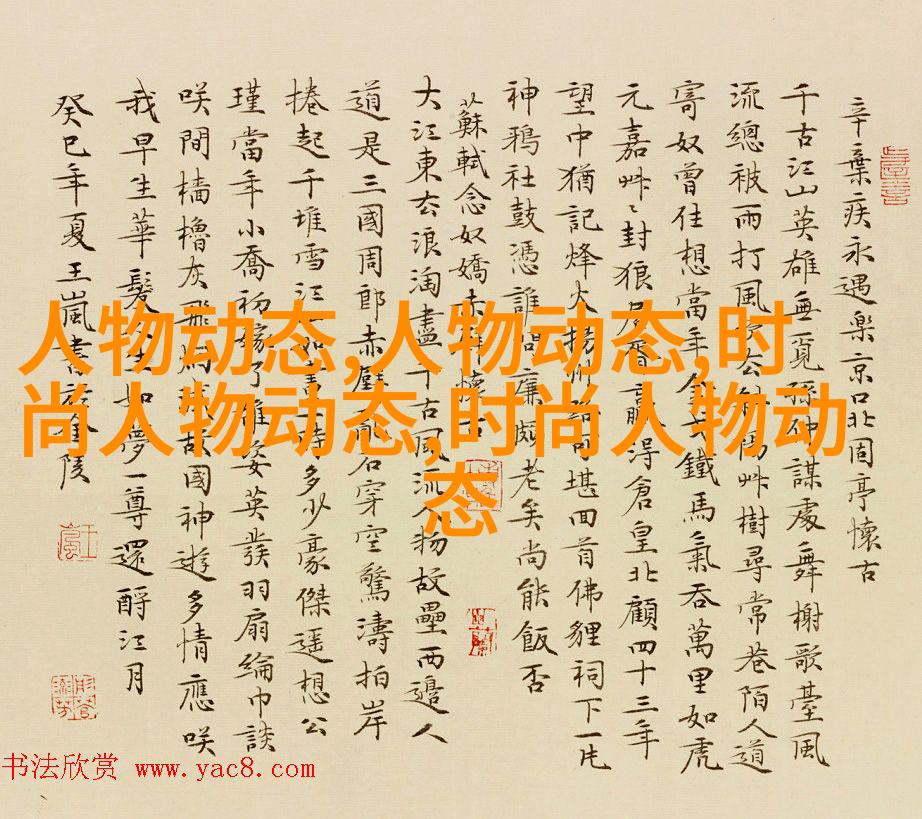 辛棄疾永遇樂京口北固亭懷古
千古江山英雄無覓孫仲謀處舞榭歌臺風
流總被雨打風吹去斜陽艸樹尋常巷陌人道
寄奴曾住想當年金戈鐵馬氣吞萬里如虎
元嘉艸〻封狼居胥贏得倉皇北顧四十三年
望中猶記烽火揚州路可堪回首佛貍祠下一片
神鴉社鼓憑誰問廉頗老矣尚能飯否
蘇軾念奴嬌赤壁懷古
大江東去浪淘盡千古風流人物故壘西邊人
道是三國周郎赤壁亂石穿空驚濤拍岸
捲起千堆雪江山如畫一時多少豪傑遥想公
瑾當年小喬初嫁了雄姿英發羽扇綸巾談
咲間檣櫓灰飛煙滅故國神遊多情應咲
我早生華髮人生如夢一尊還酹江月
癸巳年夏王嵐書於金陵
人物动态,人物动态,时
尚人物动态,时尚人物动
态
书法欣赏 www.yac8.com